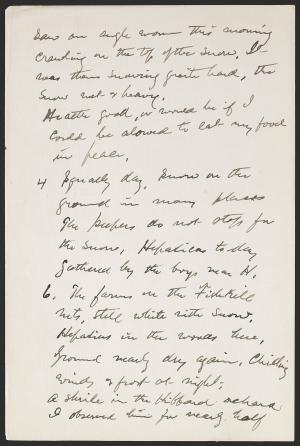 Saw an angle worm this morning
crawling on the top of the snow. It
was then snowing quite hard, the
snow wet & heavy.
Health good, or would be if I
could be alowed to eat my food
in peace.
4 Equally day. Snow on the
ground in many places
The peepers do not stop for
the snow, Hepaticas to day
gathered by the boys near H.
6. The farms on the Fishkill
Mts, still white with snow.
Hepaticas in the woods here,
Ground nearly dry again. Chilling
winds & frost at night.
A shrike in the Hibbard orchard
I observed him for nearly half